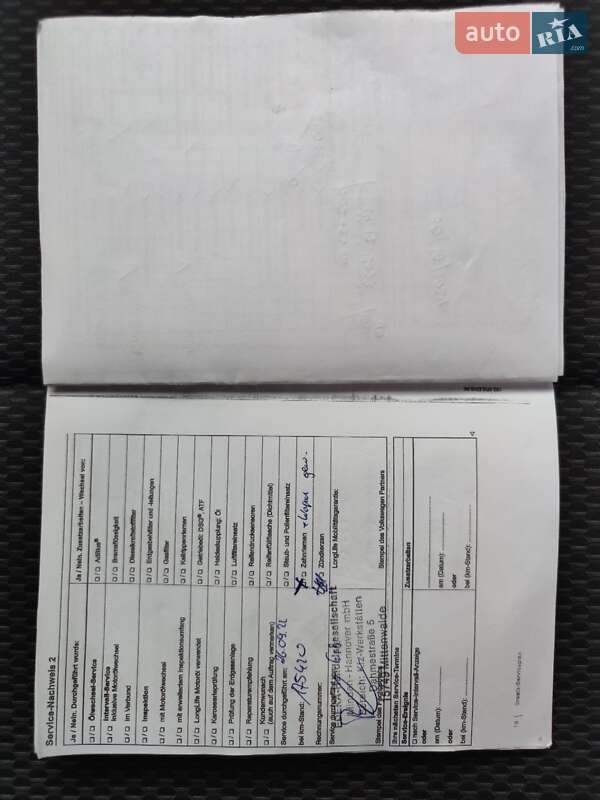 auto RIA.com
Service-Nachweis 2
Ja / Nein. Durchgeführt wurde:
☐/☐ Ölwechsel-Service
☐/☐ Intervall-Service
inklusive Motorölwechsel
☐/☐ im Verbund
☐/☐ Inspektion
☐/☐ mit Motorölwechsel
☐/☐ mit erweitertem Inspektionsumfang
☐/☐ LongLife Motoröl verwendet
☐/☐ Karosserieprüfung
☐/☐ Prüfung der Endgasanlage
☐/☐ Reparaturempfehlung
☐/☐ Kundenwunsch
(auch auf dem Auftrag vermerken)
Service durchgeführt am: 26.09.22
bei km-Stand:
Rechnungsnummer:
Ja / Nein. Zusatzarbeiten – Wechsel von:
☐/☐ AdBlue®
☐/☐ Bremsflüssigkeit
☐/☐ Dieselkraftstofffilter
☐/☐ Erdgasbehälter und -leitungen
☐/☐ Gasfilter
☐/☐ Keilrippenriemen
☐/☐ Getriebeöl: DSG®, ATF
☐/☐ Haldexkupplung: Öl
☐/☐ Luftfiltereinsatz
☐/☐ Reifendrucksensoren
☐/☐ Reifenfüllflasche (Dichtmittel)
☐/☐ Staub- und Pollenfiltereinsatz
Zahnriemen + Wapu gew.
Zündkerzen
LongLife Mobilitätsgarantie:
Stempel des Volkswagen Partners
Hannover mbH
Kfz-Werkstätten
Dahmestraße 5
15749 Mittenwalde
Ihre nächsten Service-Termine
Service-Ereignis
☐ nach Service-Intervall-Anzeige
oder
am (Datum):
oder
bei (km-Stand):
Zusatzarbeiten
am (Datum):
oder
bei (km-Stand):